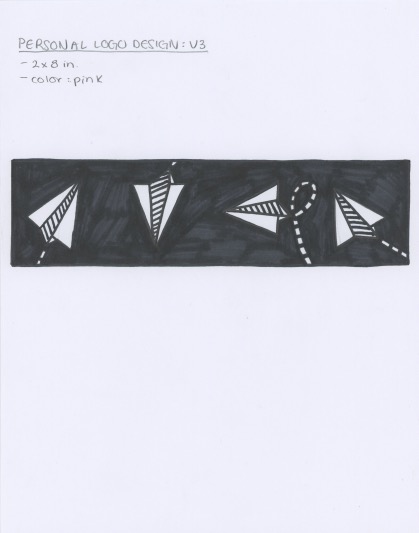 PERSONAL LOGO DESIGN: V3
- 2x8 in.
- color = pink